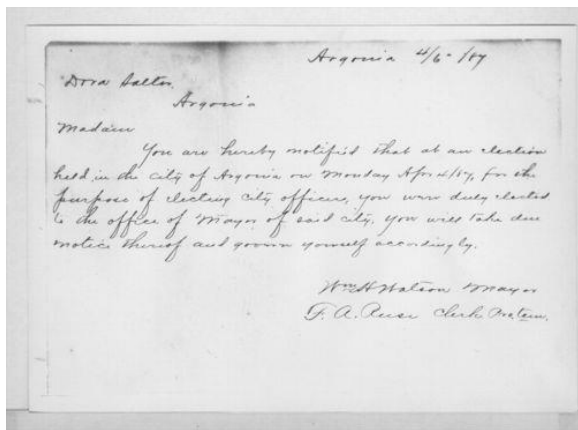 Argonia 4/6-/87
Dora Salter.
Argonia
Madam
You are hereby notified that at an election
held in the city of Argonia on Monday Apr 4/87, for the
purpose of electing city officers, you were duly elected
to the office of Mayor of said city. You will take due
notice thereof and govern yourself accordingly.
Wm H Watson Mayor
F. A. Ruse Clerk Protem.